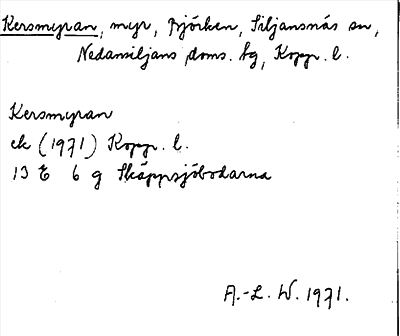 Kersmyran, myr, Björken, Siljansnäs sn,
Nedansiljans doms. tg, Kopp. l.
Kersmyran
ek (1971) Kopp. l.
13 E 6 g Skäppsjöbodarna
A.-L. W. 1971.